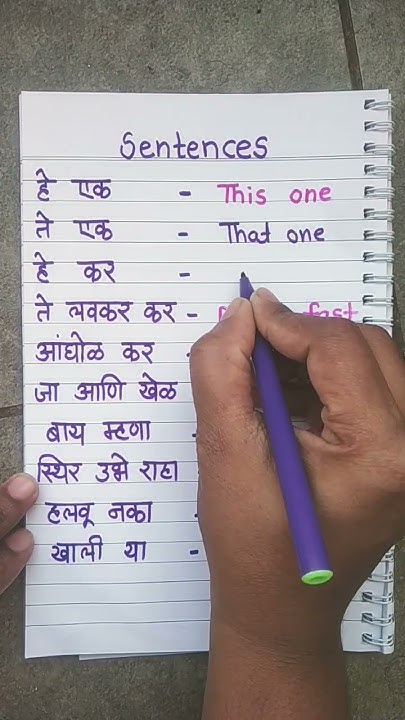 Sentences
हे एक - This one
ते एक - That one
हे कर -
ते लवकर कर - fast
आंघोळ कर -
जा आणि खेळ
बाय म्हणा -
स्थिर उभे राहा
हलवू नका -
खाली या -